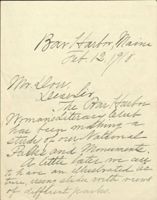 Bar Harbor, Maine
Feb 12, 1918
Mr. Dorr,
Dear Sir,
The Bar Harbor
Woman's Literary Club
has been making a
study of our National
Parks and Monuments.
A little later we are
to have an illustrated lec-
ture, using slides with views
of different parks.